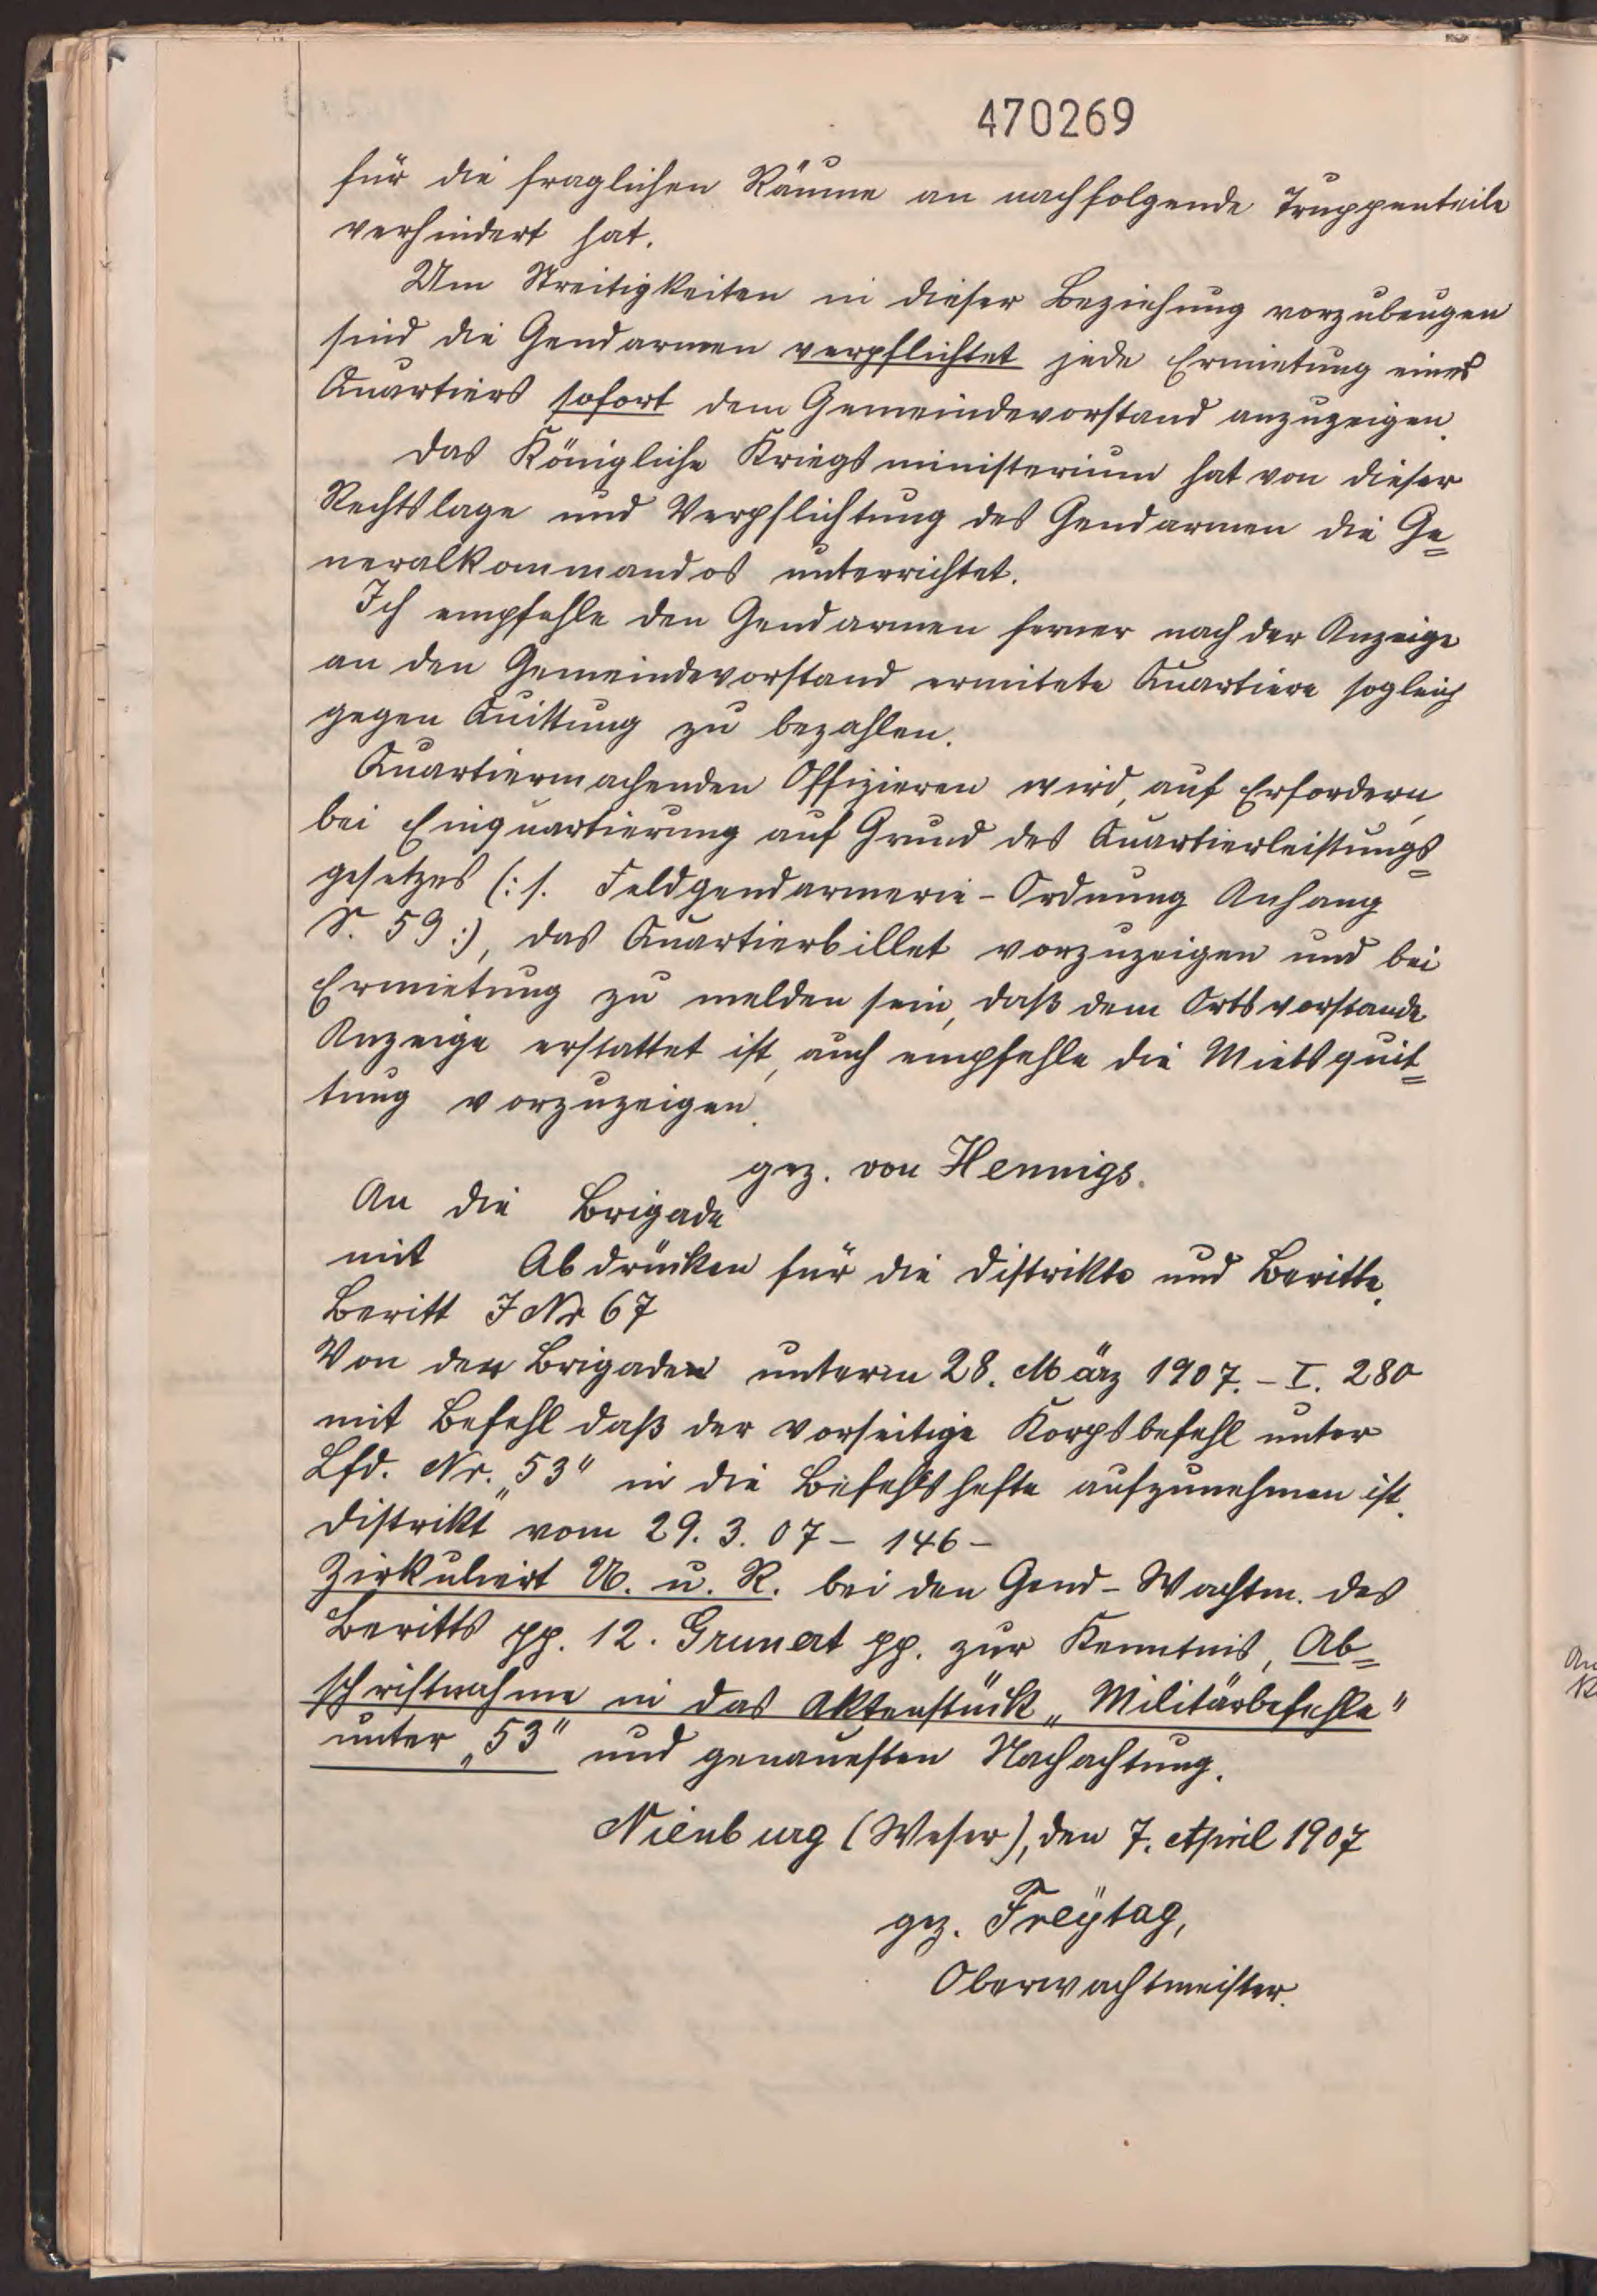 470269
für die fraglichen Räume an nachfolgende Truppenteile
verhindert hat.
Um Streitigkeiten in dieser Beziehung vorzubeugen
sind die Gendarmen verpflichtet jede Ermietung eines
Quartiers sofort dem Gemeindevorstand anzuzeigen.
Das Königliche Kriegsministerium hat von dieser
Rechtslage und Verpflichtung des Gendarmen die Ge=
neralkommandos unterrichtet.
Ich empfehle den Gendarmen ferner nach der Anzeige
an den Gemeindevorstand ermitete Quartiere sogleich
gegen Quittung zu bezahlen.
Quartiermachenden Offizieren wird, auf Erfordern,
bei Einquartierung auf Grund des Quartierleistungs=
gesetzes (: s. Feldgendarmerie-Ordnung Anhang
S. 59 :), das Quartierbillet vorzuzeigen und bei
Ermietung zu melden sein, daß dem Ortsvorstande
Anzeige erstattet ist, auch empfehle die Mietsquit=
tung vorzuzeigen.
gez. von Hennigs.
An die Brigade
mit Abdrücken für die Distrikte und Beritte.
Beritt J Nr 67
Von der Brigaden unterm 28. März 1907. - I. 280
mit Befehl daß der vorseitige Korpsbefehl unter
Lfd. Nr. „53" in die Befehlshefte aufzunehmen ist.
Distrikt vom 29. 3. 07 - 146 -
Zirkuliert U. u. R. bei den Gend-Wachtm. des
Beritts pp. 12. Grunert pp. zur Kenntnis, Ab=
schriftnahme in das Aktenstück „Militärbefehle"
unter „53" und genauesten Nachachtung.
Nienburg (Weser), den 7. April 1907
gez. Freÿtag,
Oberwachtmeister.